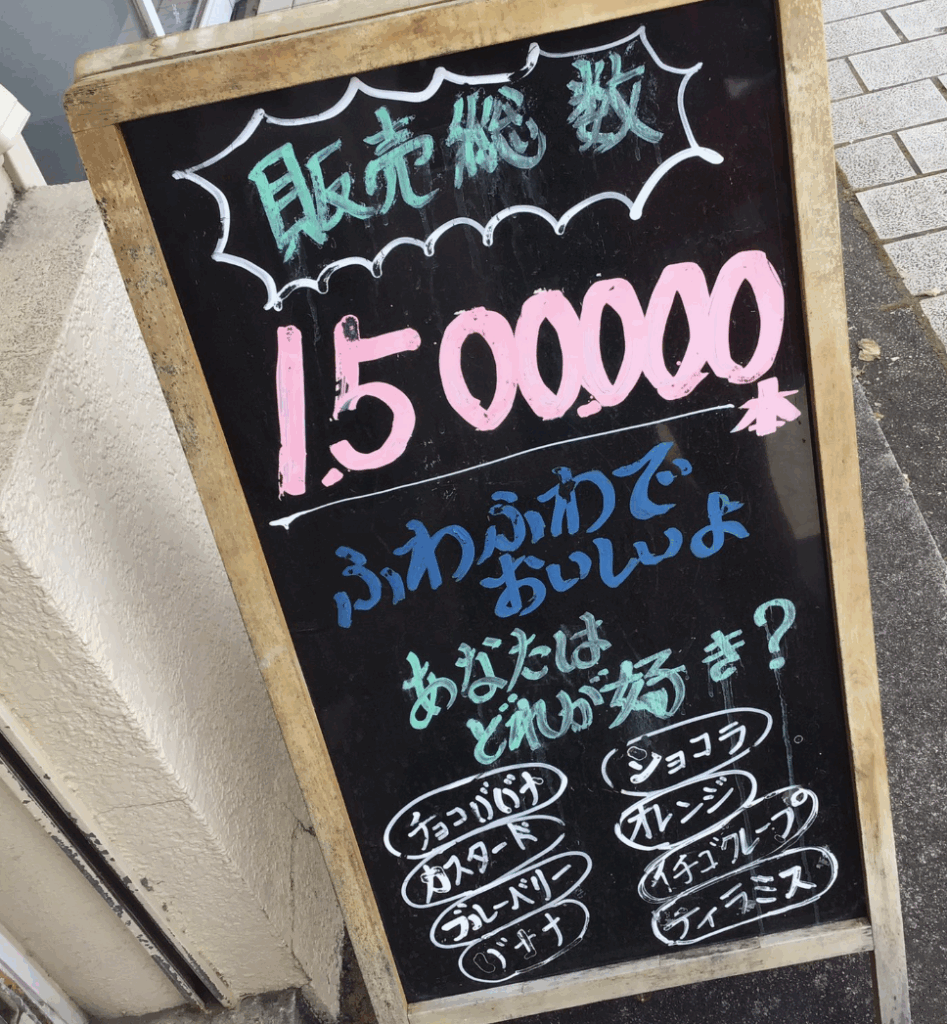 販売総数
1.500000本
ふわふわで
おいしいよ
あなたは
どれが好き?
チョコバナナ
ショコラ
カスタード
オレンジ
ブルーベリー
イチゴクレープ
バナナ
ティラミス